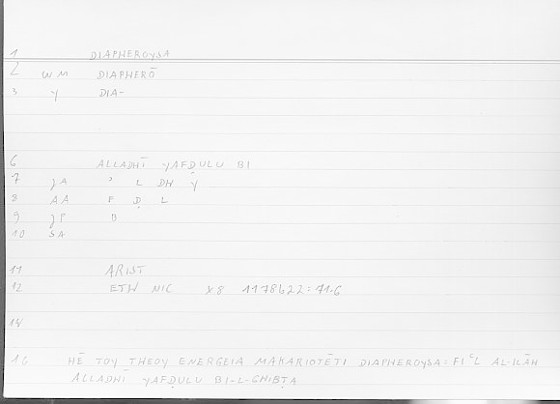 1 DIAPHEROYSA
2 WM DIAPHERŌ
3 Y DIA-
6 ALLADHĪ YAFḌULU BI
7 JA ʾ L DH Y
8 AA F Ḍ L
9 JP B
10 SA
11 ARIST
12 ETH NIC 1178b22 = 71.6
14
16 HĒ TOY THEOY ENERGEIA MAKARIOTĒTI DIAPHEROYSA : FIʿL AL-ILĀH
ALLADHĪ YAFḌULU BI-L-GHIBṬA